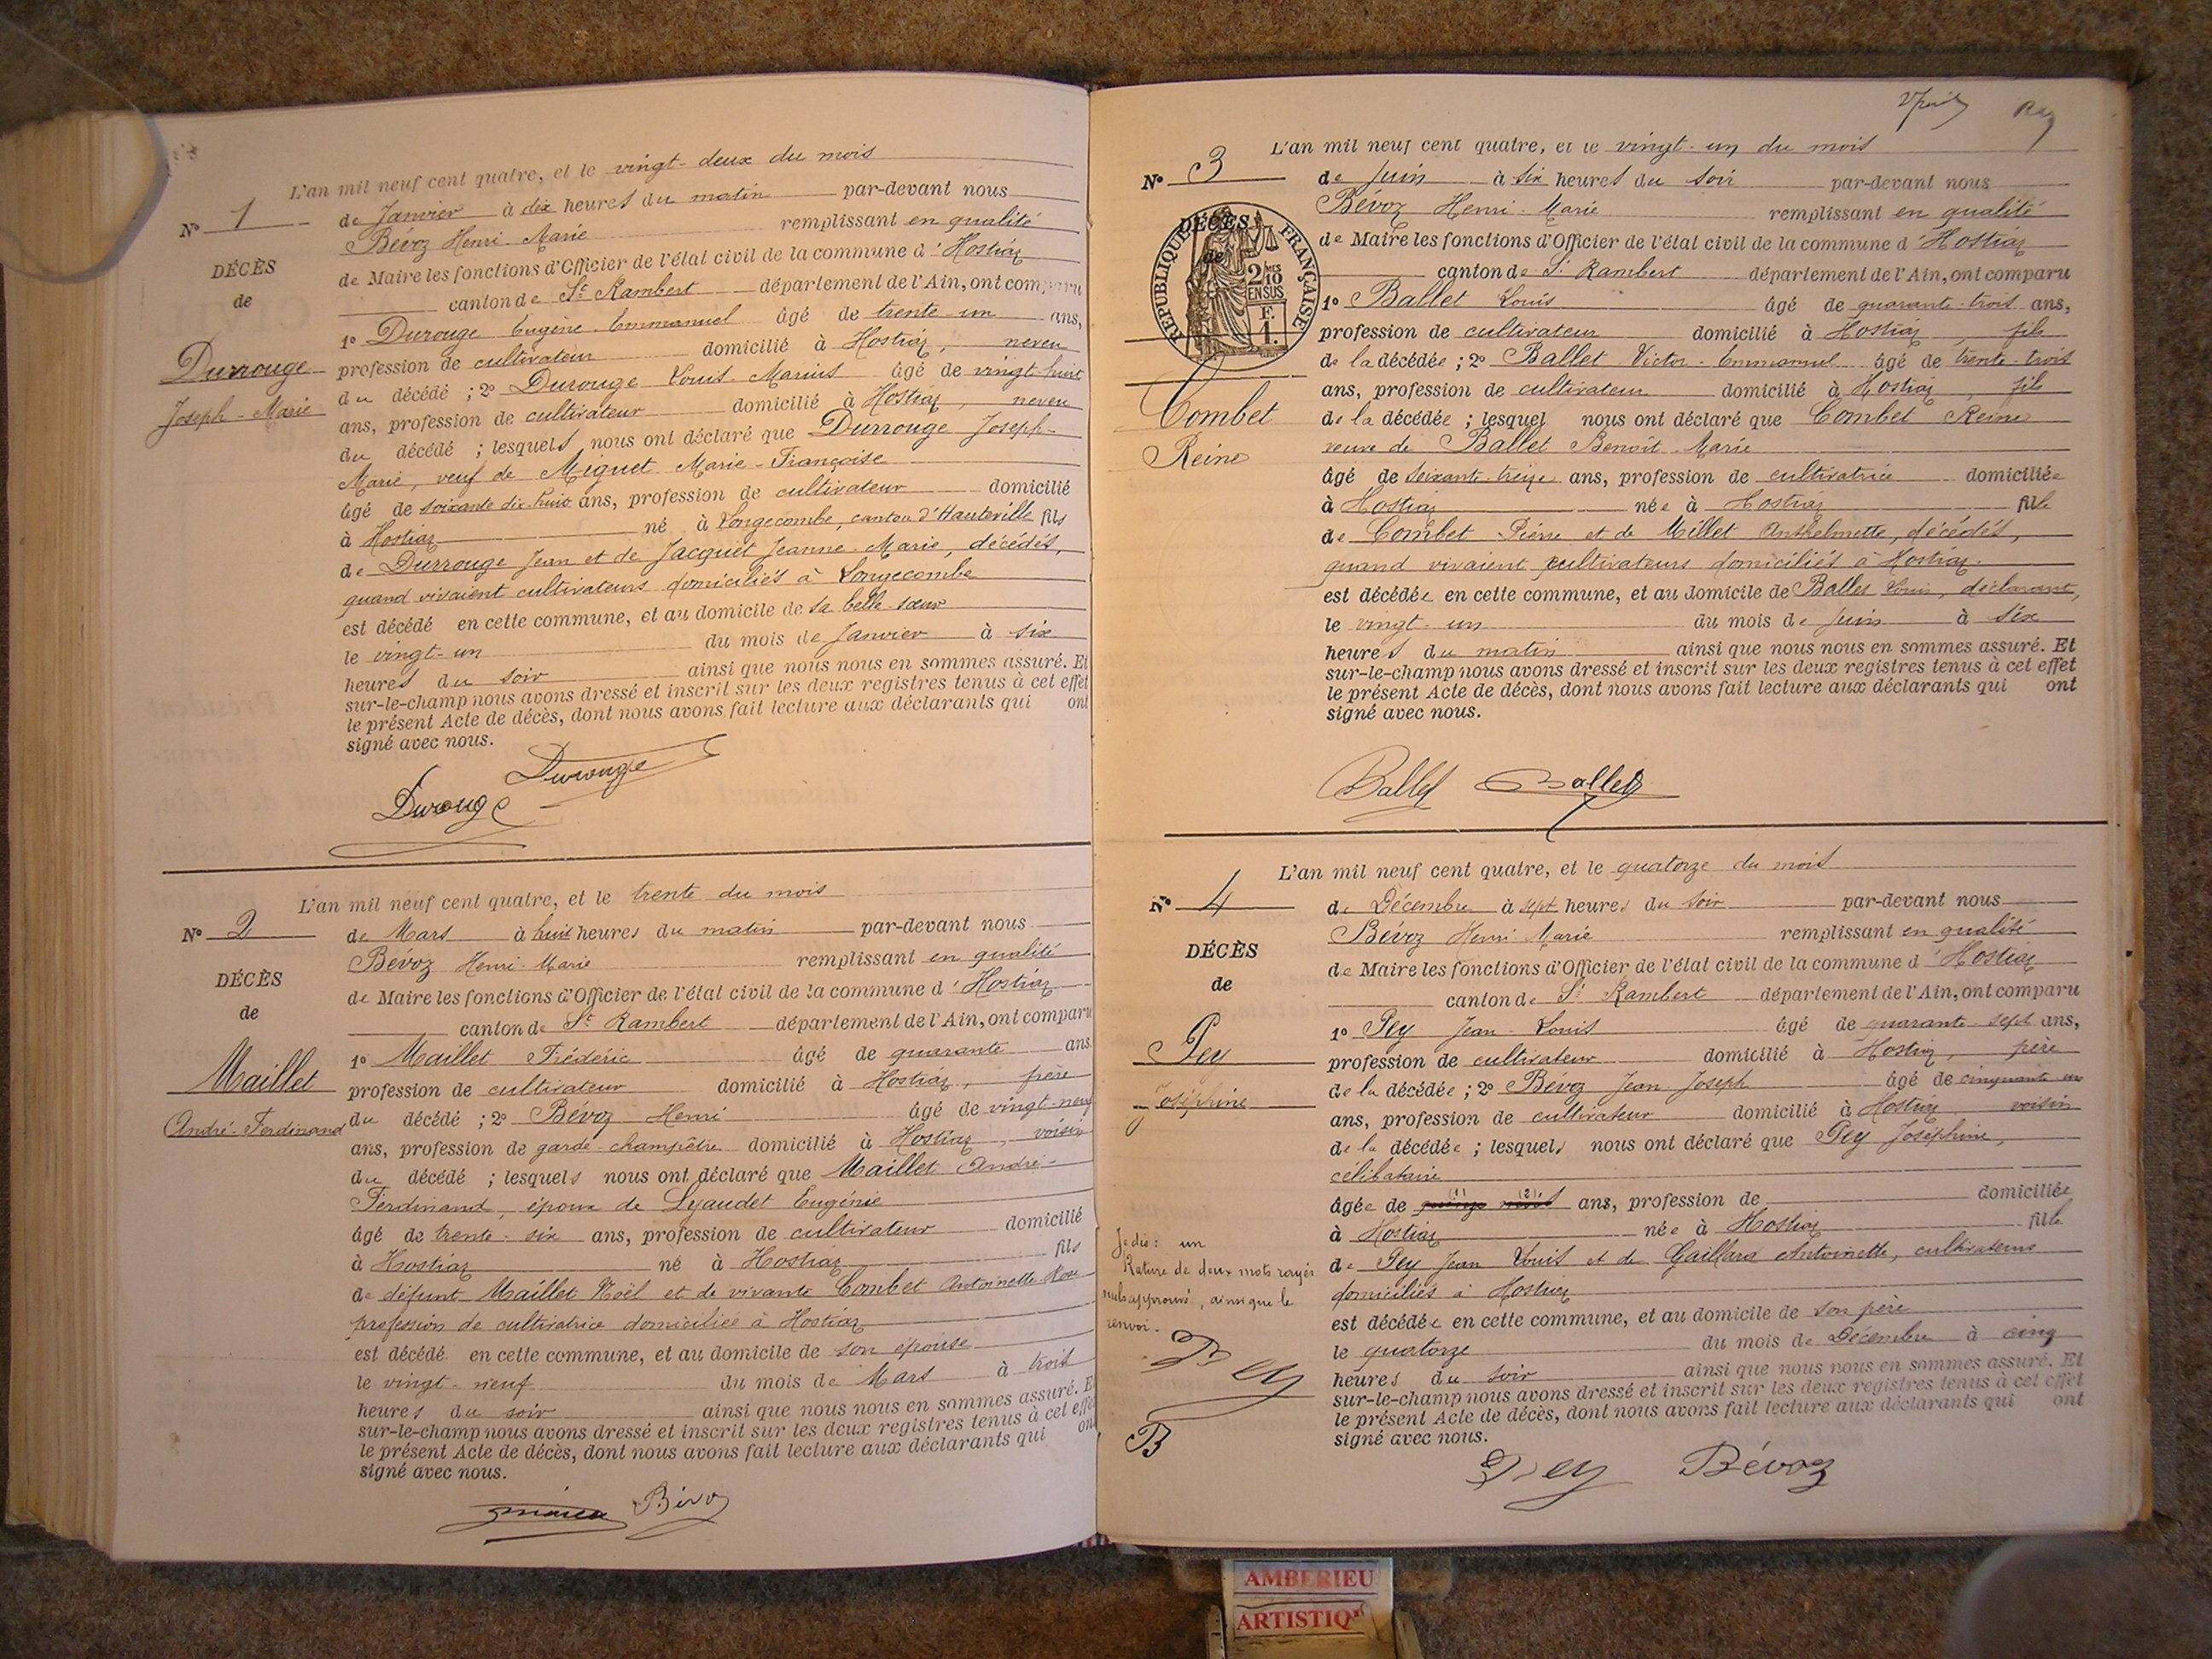 L'an mil neuf cent quatre, et le vingt-deux du mois
N° 1
de Janvier à dix heures du matin par-devant nous
Bévoz Henri-Marie remplissant en qualité
DÉCÈS
de Maire les fonctions d'Officier de l'état civil de la commune d'Hostiaz
de
canton de St Rambert département de l'Ain, ont comparu
1° Durouge Eugène-Emmanuel âgé de trente-un ans,
Durrouge
profession de cultivateur domicilié à Hostiaz, neveu
Joseph-Marie
du décédé ; 2° Durouge Louis-Marius âgé de vingt huit
ans, profession de cultivateur domicilié à Hostiaz, neveu
du décédé ; lesquels nous ont déclaré que Durrouge Joseph-
Marie, veuf de Miguet Marie-Françoise
âgé de soixante dix-huit ans, profession de cultivateur domicilié
à Hostiaz né à Longecombe, canton d'Hauteville fils
de Durrouge Jean et de Jacquet Jeanne-Marie, décédés,
quand vivaient cultivateurs domiciliés à Longecombe
est décédé en cette commune, et au domicile de sa belle-sœur
le vingt-un du mois de Janvier à six
heures du soir ainsi que nous nous en sommes assuré. Et
sur-le-champ nous avons dressé et inscrit sur les deux registres tenus à cet effet
le présent Acte de décès, dont nous avons fait lecture aux déclarants qui ont
signé avec nous.
Durouge
Durouge
L'an mil neuf cent quatre, et le trente du mois
N° 2
de Mars à huit heures du matin par-devant nous
Bevoz Henri-Marie remplissant en qualité
DÉCÈS
de Maire les fonctions d'Officier de l'état civil de la commune d'Hostiaz
de
canton de St Rambert département de l'Ain, ont comparu
1° Maillet Frédéric âgé de quarante ans
Maillet
profession de cultivateur domicilié à Hostiaz, frère
André-Ferdinand
du décédé ; 2° Bévoz Henri âgé de vingt-neuf
ans, profession de garde-champêtre domicilié à Hostiaz, voisin
du décédé ; lesquels nous ont déclaré que Maillet André-
Ferdinand, époux de Lyaudet Eugénie
âgé de trente-six ans, profession de cultivateur domicilié
à Hostiaz né à Hostiaz fils
de défunt Maillet Noël et de vivante Combet Antoinette
profession de cultivatrice domiciliée à Hostiaz
est décédé en cette commune, et au domicile de son épouse
le vingt-neuf du mois de Mars à trois
heures du soir ainsi que nous nous en sommes assuré. Et
sur-le-champ nous avons dressé et inscrit sur les deux registres tenus à cet effet
le présent Acte de décès, dont nous avons fait lecture aux déclarants qui ont
signé avec nous.
Bévoz
L'an mil neuf cent quatre, et le vingt-un du mois
N° 3
de Juin à six heures du soir par-devant nous
Bévoz Henri-Marie remplissant en qualité
DÉCÈS
de
RÉPUBLIQUE FRANÇAISE
2/10 EN SUS
F. 1.
de Maire les fonctions d'Officier de l'état civil de la commune d'Hostiaz
canton de St Rambert département de l'Ain, ont comparu
1° Ballet Louis âgé de quarante-trois ans,
profession de cultivateur domicilié à Hostiaz, fils
de la décédée ; 2° Ballet Victor-Emmanuel âgé de trente-trois
ans, profession de cultivateur domicilié à Hostiaz, fils
Combet
de la décédée ; lesquel nous ont déclaré que Combet Reine
Reine
veuve de Ballet Benoît-Marie
âgé de soixante-treize ans, profession de cultivatrice domiciliée
à Hostiaz née à Hostiaz fille
de Combet Pierre et de Millet Anthelmette, décédés,
quand vivaient cultivateurs domiciliés à Hostiaz.
est décédée en cette commune, et au domicile de Ballet Louis, déclarant,
le vingt-un du mois de Juin à six
heures du matin ainsi que nous nous en sommes assuré. Et
sur-le-champ nous avons dressé et inscrit sur les deux registres tenus à cet effet
le présent Acte de décès, dont nous avons fait lecture aux déclarants qui ont
signé avec nous.
Ballet Ballet
L'an mil neuf cent quatre, et le quatorze du mois
N° 4
de Décembre à sept heures du soir par-devant nous
Bévoz Henri-Marie remplissant en qualité
DÉCÈS
de Maire les fonctions d'Officier de l'état civil de la commune d'Hostiaz
de
canton de St Rambert département de l'Ain, ont comparu
1° Pey Jean-Louis âgé de quarante-sept ans,
Pey
profession de cultivateur domicilié à Hostiaz, père
Joséphine
de la décédée ; 2° Bévoz Jean Joseph âgé de cinquante-un
ans, profession de cultivateur domicilié à Hostiaz voisin
de la décédée ; lesquels nous ont déclaré que Pey Joséphine,
célibataire
âgée de (1) (2) ans, profession de domiciliée
à Hostiaz née à Hostiaz fille
de Pey Jean Louis et de Gaillard Antoinette, cultivateurs
domiciliés à Hostiaz
est décédée en cette commune, et au domicile de son père
le quatorze du mois de Décembre à cinq
heures du soir ainsi que nous nous en sommes assuré. Et
sur-le-champ nous avons dressé et inscrit sur les deux registres tenus à cet effet
le présent Acte de décès, dont nous avons fait lecture aux déclarants qui ont
signé avec nous.
Je dis : un
Rature de deux mots rayés
nuls approuvé, ainsi que le
renvoi.
Pey
B
Pey Bévoz
AMBERIEU
ARTISTIQ